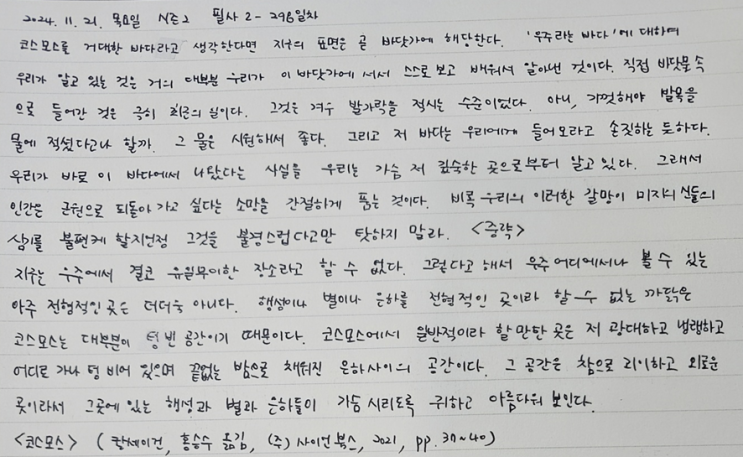 2024. 11. 21. 목요일 NE2 필사 2 - 296일차
코스모스를 거대한 바다라고 생각한다면 지구의 표면은 곧 바닷가에 해당한다. '우주라는 바다'에 대하여
우리가 알고 있는 것은 거의 대부분 우리가 이 바닷가에 서서 스스로 보고 배워서 알아낸 것이다. 직접 바닷물 속
으로 들어간 것은 극히 최근의 일이다. 그것은 겨우 발가락을 적시는 수준이었다. 아니, 기껏해야 발목을
물에 적셨다고나 할까. 그 물은 시원해서 좋다. 그리고 저 바다는 우리에게 들어오라고 손짓하는 듯하다.
우리가 바로 이 바다에서 나왔다는 사실을 우리는 가슴 저 깊숙한 곳으로부터 알고 있다. 그래서
인간은 근원으로 되돌아가고 싶다는 소망을 간절하게 품는 것이다. 비록 우리의 이러한 갈망이 미지의 신들의
심기를 불편케 할지언정 그것을 불경스럽다고만 탓하지 말라. <중략>
지구는 우주에서 결코 유일무이한 장소라고 할 수 없다. 그렇다고 해서 우주 어디에서나 볼 수 있는
아주 전형적인 곳은 더더욱 아니다. 행성이나 별이나 은하를 전형적인 곳이라 할 수 없는 까닭은
코스모스는 대부분이 텅 빈 공간이기 때문이다. 코스모스에서 일반적이라 할만한 곳은 저 광대하고 냉랭하고
어디로 가나 텅 비어 있으며 끝없는 밤으로 채워진 은하 사이의 공간이다. 그 공간은 참으로 괴이하고 외로운
곳이라서 그곳에 있는 행성과 별과 은하들이 가슴 시리도록 귀하고 아름다워 보인다.
<코스모스> (칼세이건, 홍승수 옮김, (주) 사이언스북스, 2021, pp. 37~40)